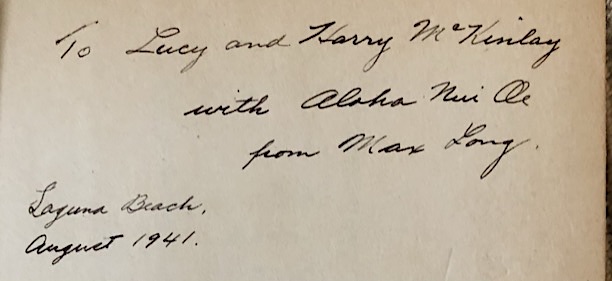 To Lucy and Harry McKinlay
with Aloha Nui Oe
from Max Long.
Laguna Beach,
August 1941.